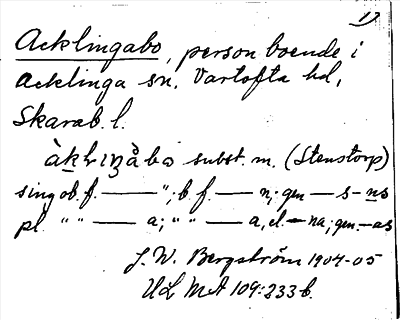 17
Acklingabo, person boende i
Acklinga sn, Vartofta hd,
Skarab. l.
àkliŋåbo subst. m. (Stenstorp)
sing ob. f. — „; b. f. — n; gen — s - ns
pl. " " — a; " " — a, el. - na; gen. - as
J. W. Bergström 1904-05
ULMA 109:233 b.